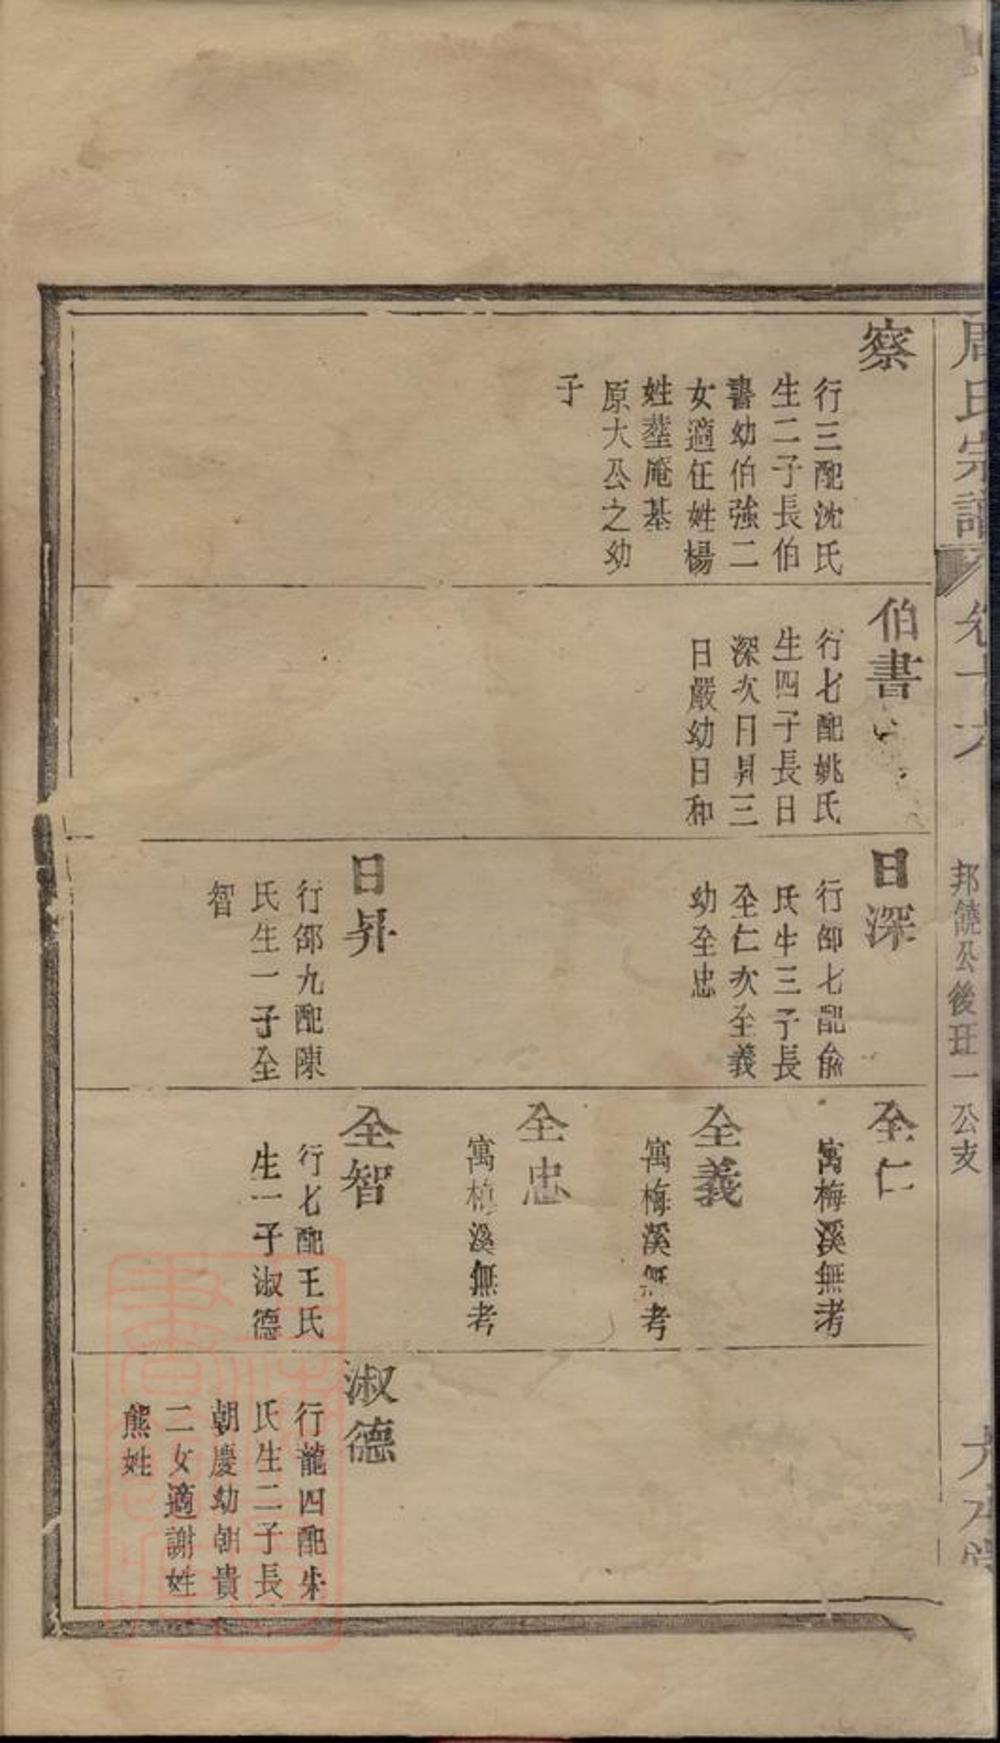 周氏宗譜
卷十六
邦饒公後玨一公支
察
行三配沈氏
生二子長伯
書幼伯強二
女適任姓楊
姓塟庵基
原大公之幼
子
伯書
行七配姚氏
生四子長日
深次日昇三
日嚴幼日和
日深
行邵七配俞
氏生三子長
全仁次全義
幼全忠
日昇
行邵九配陳
氏生一子全
智
全仁
寓梅溪無考
全義
寓梅溪無考
全忠
寓梅溪無考
全智
行七配王氏
生一子淑德
淑德
行龍四配朱
氏生二子長
朝慶幼朝貴
二女適謝姓
熊姓